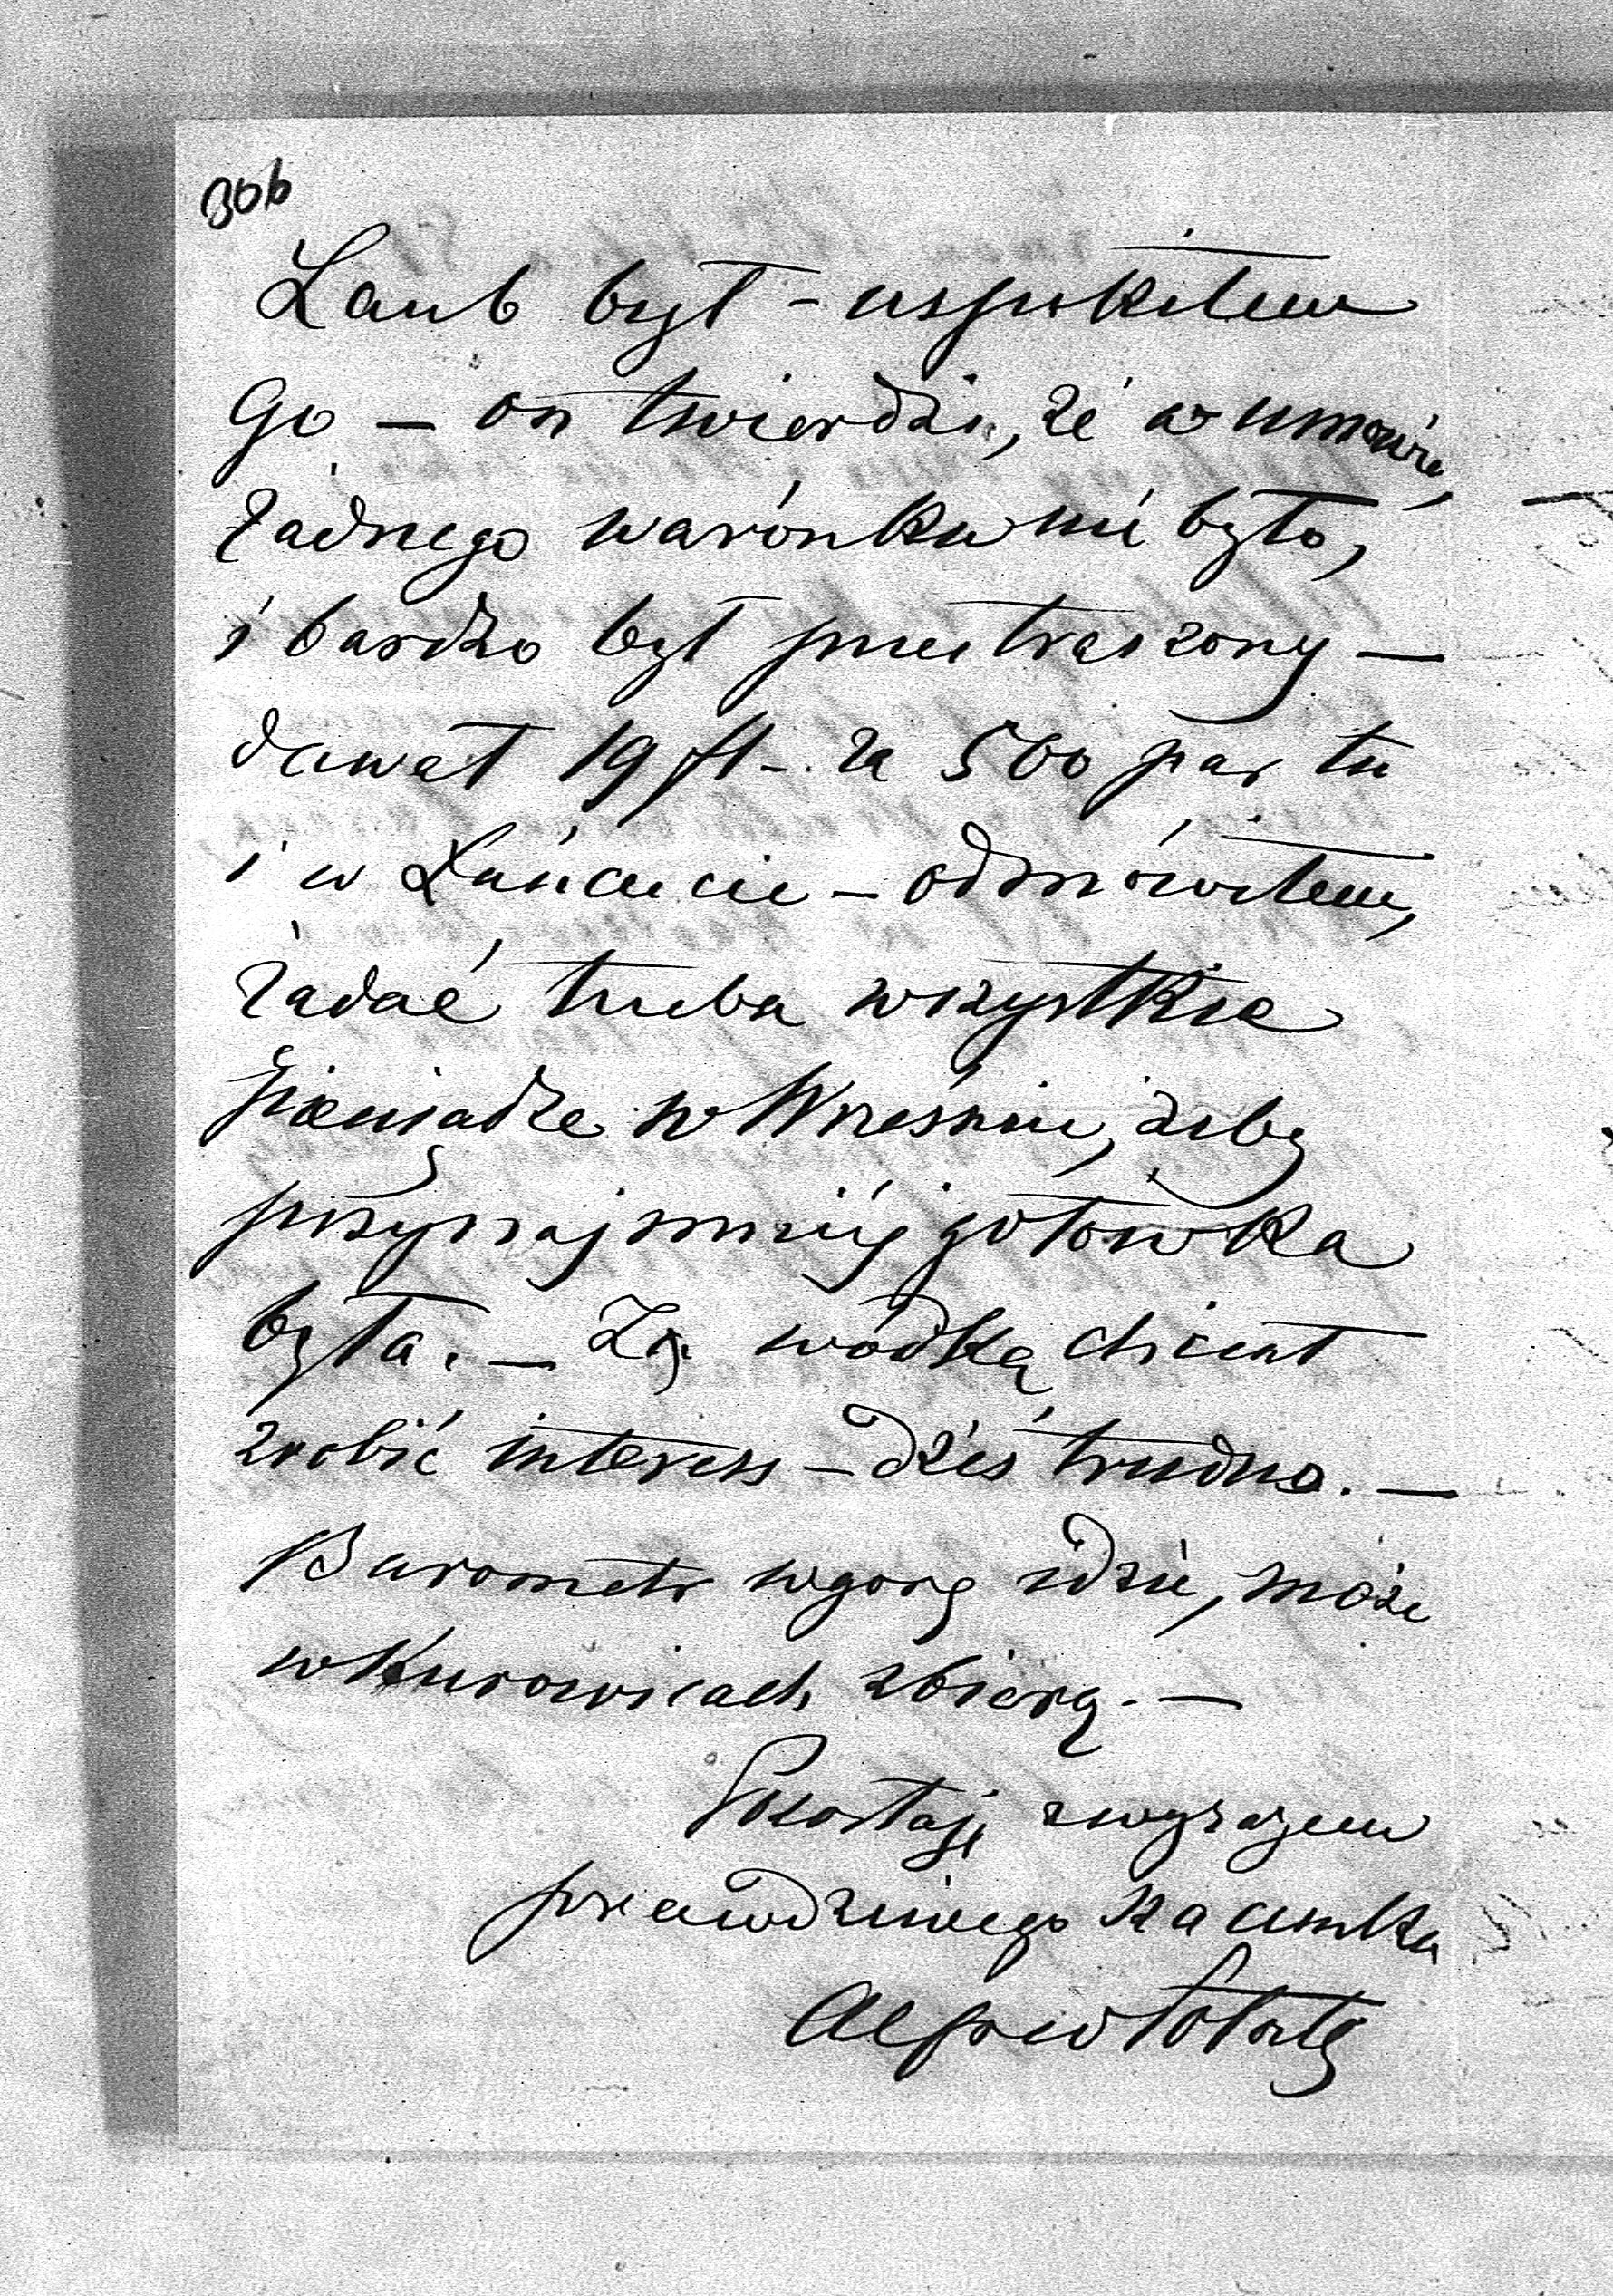 306
Laub był – uspokiłem
Go – on twierdzi, że w umowie,
żadnego warónku nié było,
i bardzo był przestraszony –
dawał 19 fl – za 500 par tu
i w Łańcucie – odmówiłem,
żądać trzeba wszystkie
pieniądze w Wrześniu, żeby
przynajmniéj gotówka
była. – Za wódkę chciał
zrobić interess – dziś trudno. –
Barometr wgorę idzie, może
w Kurowicach zbiorą. –
Pozostaję z wyrazem
prawdziwego szacunku
Alfred Potocki